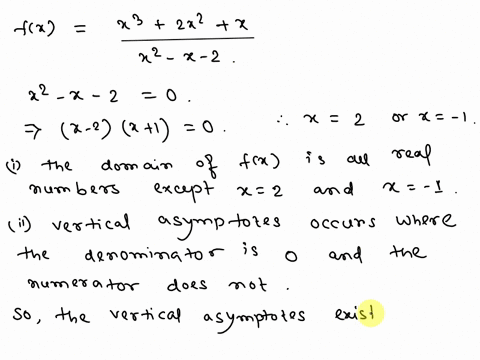 f(x) = x³ + 2x² + x / x² - x - 2.
x² - x - 2 = 0.
⇒ (x-2) (x+1) = 0. ∴ x = 2 or x = -1.
(i) the domain of f(x) is all real
numbers except x = 2 and x = -1.
(ii) vertical asymptotes occurs where
the denominator is 0 and the
numerator does not.
So, the vertical asymptotes exist